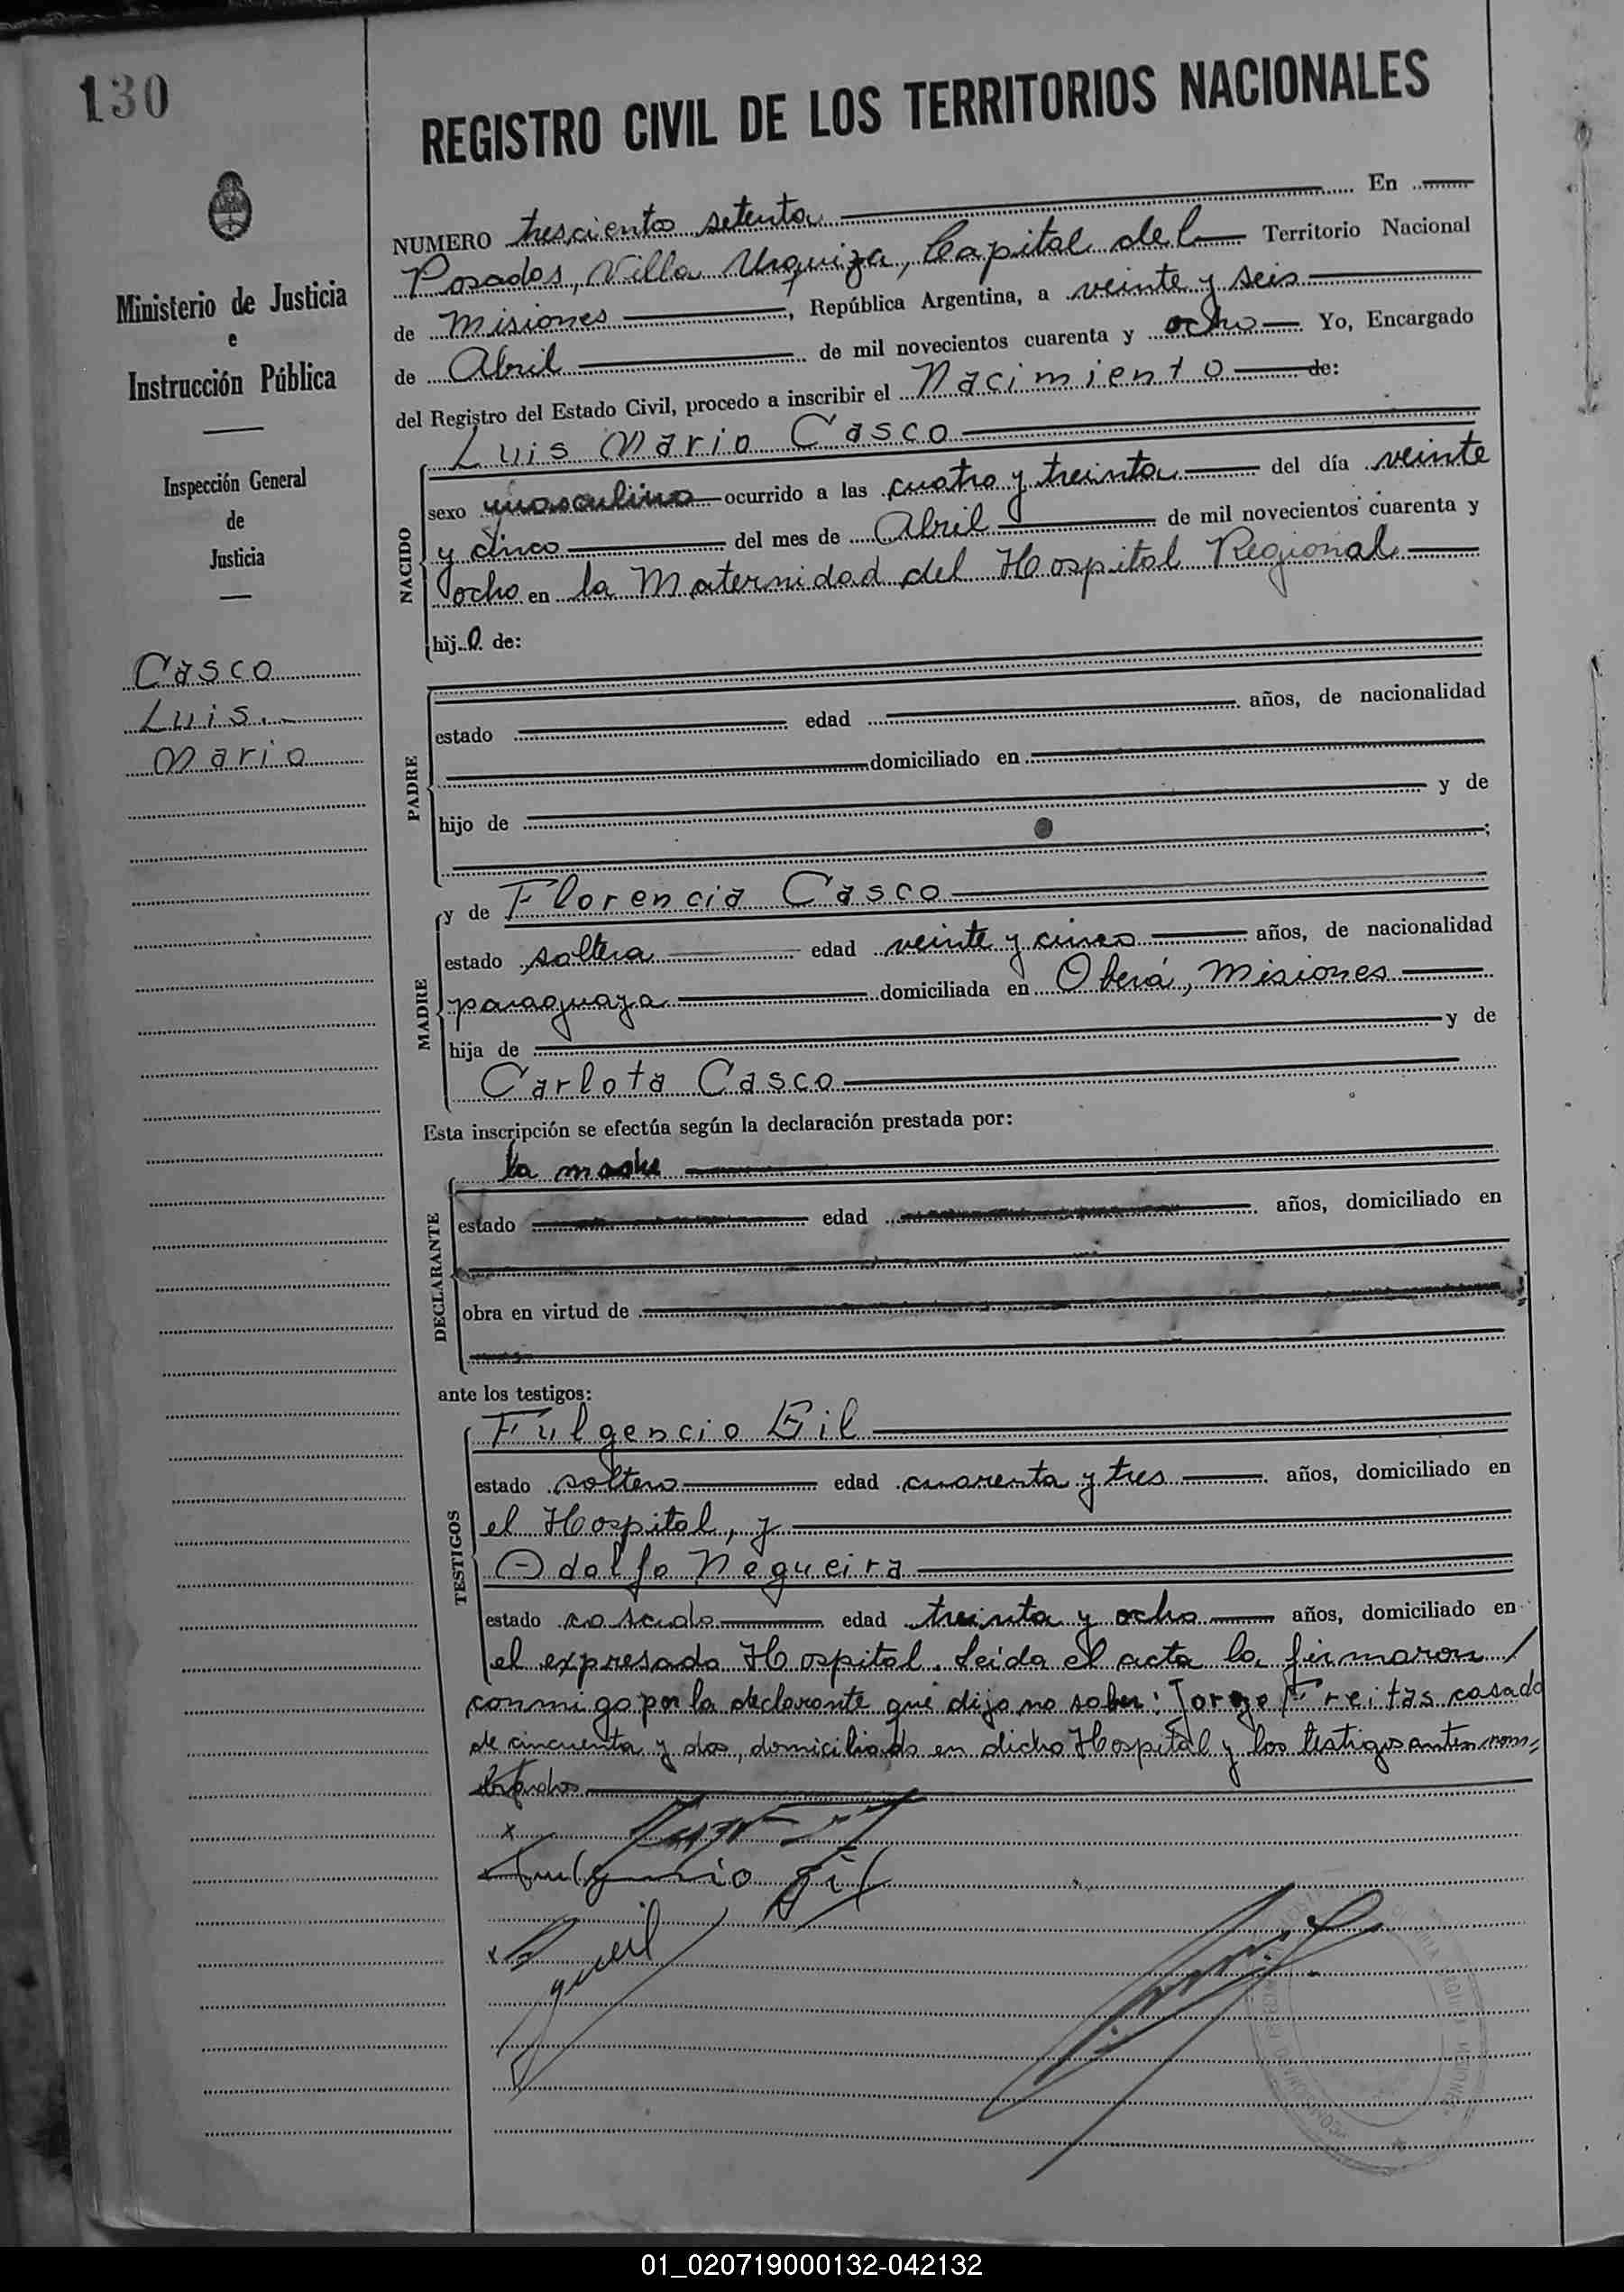 130
Ministerio de Justicia
e
Instrucción Pública
Inspección General
de
Justicia
Casco
Luis
Mario
REGISTRO CIVIL DE LOS TERRITORIOS NACIONALES
NUMERO trescientos setenta En
Posadas, Villa Urquiza, Capital del Territorio Nacional
de Misiones, República Argentina, a veinte y seis
de Abril de mil novecientos cuarenta y ocho Yo, Encargado
del Registro del Estado Civil, procedo a inscribir el Nacimiento de:
Luis Mario Casco
NACIDO
sexo masculino ocurrido a las cuatro y treinta del día veinte
y cinco del mes de Abril de mil novecientos cuarenta y
ocho en la Maternidad del Hospital Regional
hijo de:
PADRE
estado edad años, de nacionalidad
domiciliado en
hijo de y de
;
MADRE
y de Florencia Casco
estado soltera edad veinte y cinco años, de nacionalidad
paraguaya domiciliada en Oberá, Misiones
hija de y de
Carlota Casco
Esta inscripción se efectúa según la declaración prestada por:
la madre
DECLARANTE
estado edad años, domiciliado en
obra en virtud de
ante los testigos:
TESTIGOS
Fulgencio Gil
estado soltero edad cuarenta y tres años, domiciliado en
el Hospital, y
Adolfo Negueira
estado casado edad treinta y ocho años, domiciliado en
el expresado Hospital. Leida el acta la firmaron
conmigo por la declarante que dijo no saber: Jorge Freitas casado
de cincuenta y dos, domiciliado en dicho Hospital y los testigos antes nom=
brados
Fulgencio Gil
01_020719000132-042132